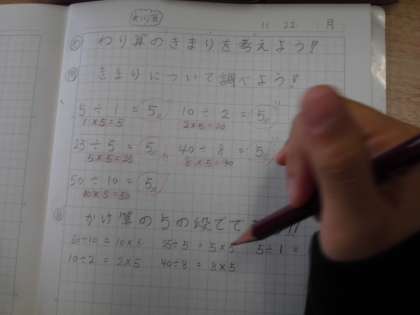 わり算
11 22 月
わり算のきまりを考えよう!!
きまりについて調べよう!!
5÷1=5 10÷2=5
1×5=5 2×5=10
25÷5=5 40÷8=5
5×5=25 8×5=40
50÷10=5
10×5=50
かけ算の5の段でて
50÷10=10×5 25÷5=5×5 5÷1=
10÷2=2×5 40÷8=8×5